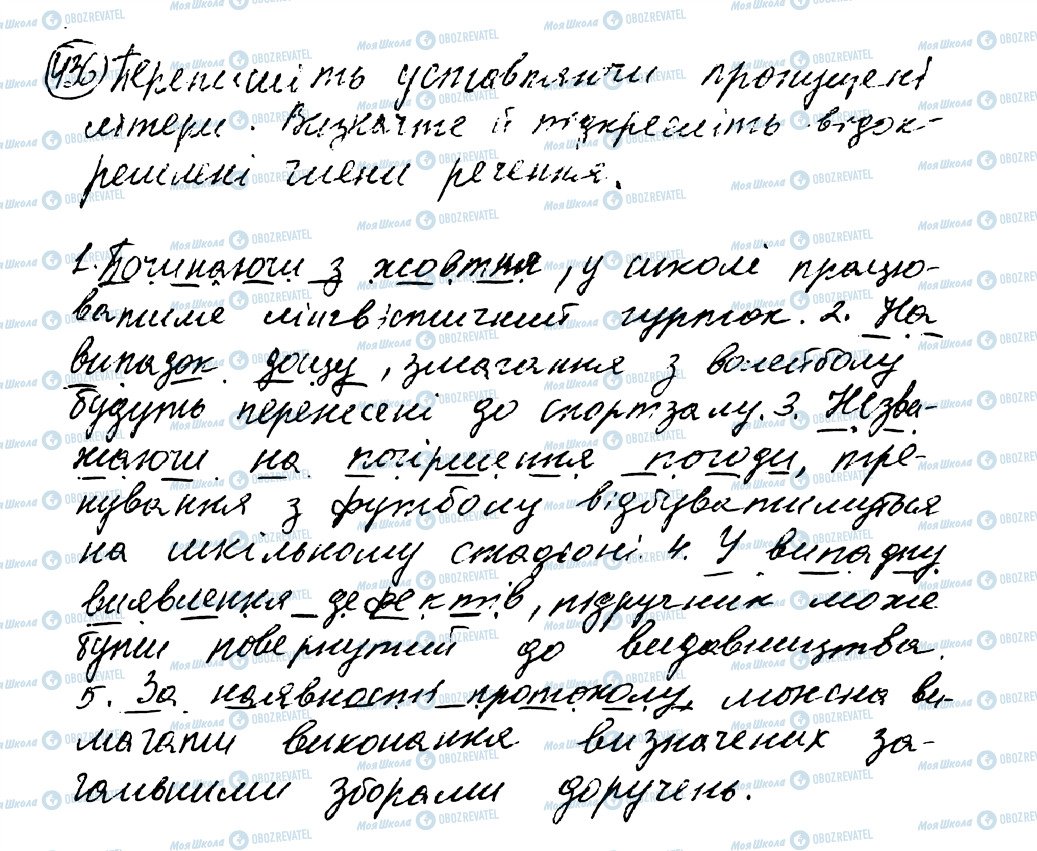 436) Перепишіть уставляючи пропущені
літери. Визначте й підкресліть відок-
ремлені члени речення.
1. Починаючи з жовтня, у школі працю-
ватиме лінгвістичний гурток. 2. На
випадок дощу, змагання з волейболу
будуть перенесені до спортзалу. 3. Незва-
жаючи на погіршення погоди, тре-
нування з футболу відбуватимуться
на шкільному стадіоні. 4. У випадку
виявлення дефектів, підручник може
бути повернутий до видавництва.
5. За наявності протоколу, можна ви-
магати виконання визначених за-
гальними зборами доручень.